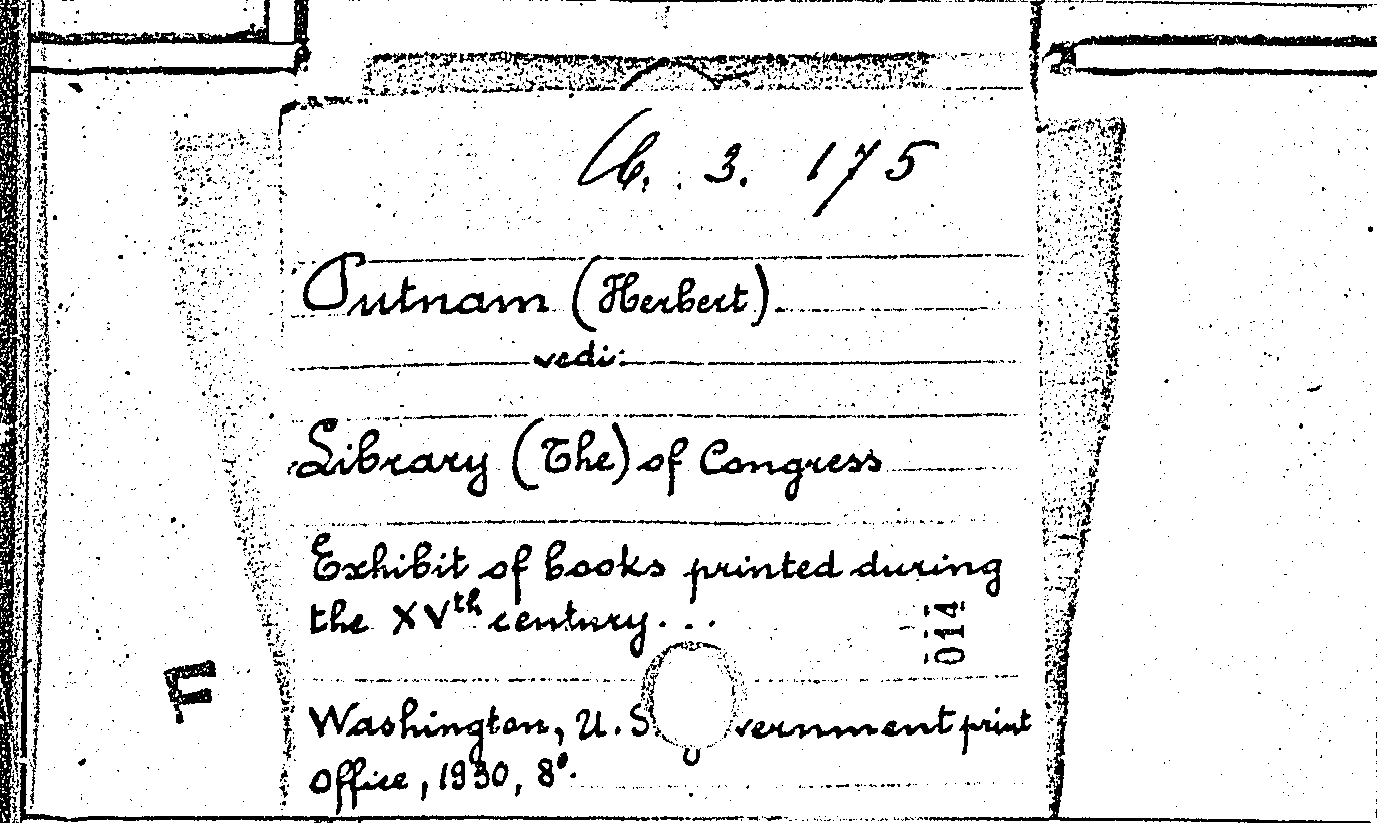 C. 3. 175
Putnam (Herbert)
vedi:
Library (The) of Congress
Exhibit of books printed during
the XVth century...
014
F
Washington, U.S. vernment print
office, 1930, 8°.